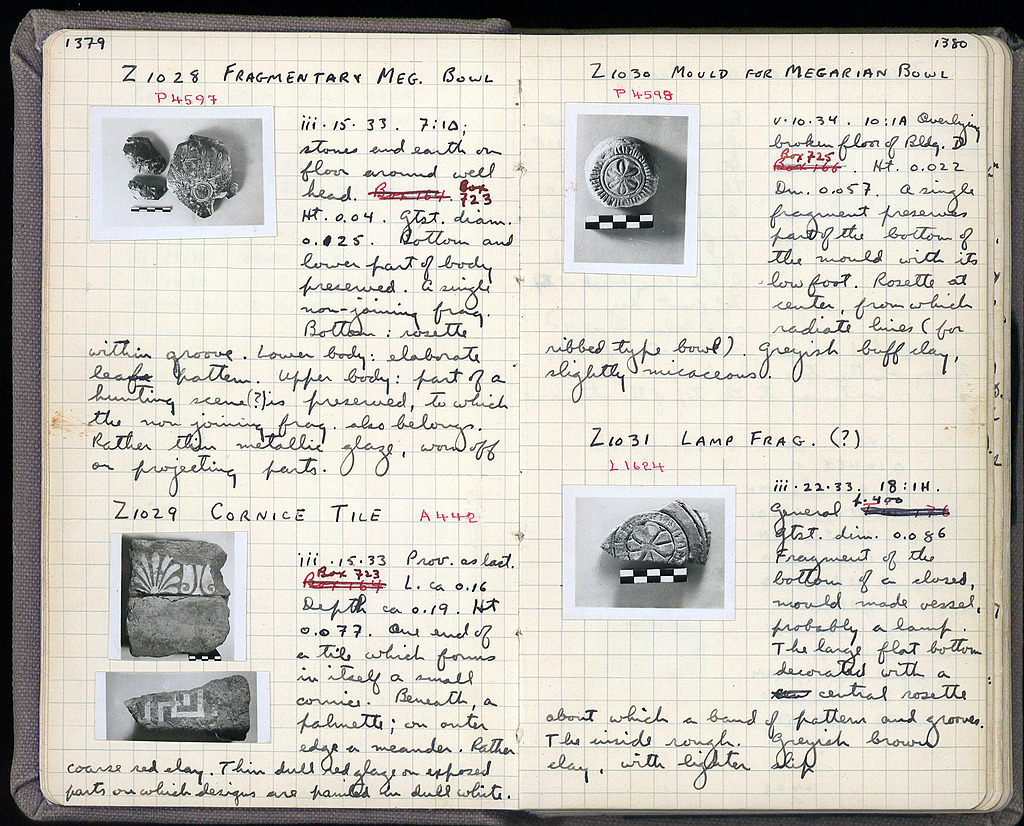 1379
Z1028 FRAGMENTARY MEG. BOWL
P4597
iii.15.33. 7:1Δ;
stones and earth on
floor around well
head. Box 164. Box
723
Ht. 0.04. Gtst. diam.
0.125. Bottom and
lower part of body
preserved. A single
non-joining frag.
Bottom: rosette
within groove. Lower body: elaborate
leaf pattern. Upper body: part of a
hunting scene(?) is preserved, to which
the non joining frag. also belongs.
Rather thin metallic glaze, worn off
on projecting parts.
Z1029 CORNICE TILE A442
iii.15.33 Prov. as last.
Box 723
Box 164 L. ca 0.16
Depth ca 0.19. Ht
0.077. One end of
a tile which forms
in itself a small
cornice. Beneath, a
palmette; on outer
edge a meander. Rather
coarse red clay. Thin dull red glaze on exposed
parts on which designs are painted in dull white.
1380
Z1030 MOULD FOR MEGARIAN BOWL
P4598
v.10.34. 10:1A Overlying
broken floor of Bldg. D
Box 725
Box 166. Ht. 0.022
Dm. 0.057. A single
fragment preserves
part of the bottom of
the mould with its
low foot. Rosette at
center, from which
radiate lines (for
ribbed type bowl). Greyish buff clay,
slightly micaceous.
Z1031 LAMP FRAG. (?)
L1624
iii.22.33. 18:1H.
General
Gtst. dim. 0.086
Fragment of the
bottom of a closed,
mould made vessel,
probably a lamp.
The large flat bottom
decorated with a
central rosette
about which a band of pattern and grooves.
The inside rough. Greyish brown
clay, with lighter slip